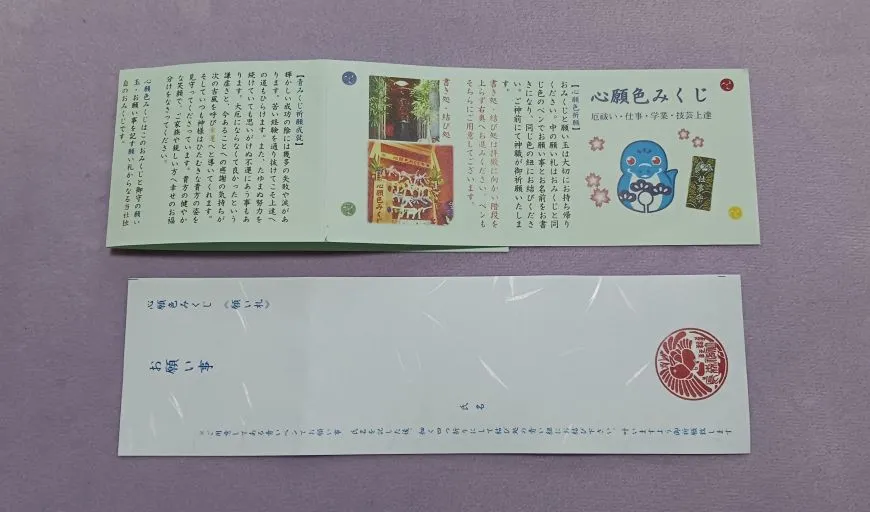 心願色みくじ
厄祓い・仕事・学業・技芸上達
【心願色祈願】
おみくじと願い玉は大切にお持ち帰り
ください。中の願い札はおみくじと同
じ色のペンでお願い事とお名前をお書
きになり、同じ色の紐にお結びくださ
い。ご神前にて神職が御祈願いたしま
す。
書き処・結び処は拝殿に向かい階段を
上らず右奥へお進みください。ペンも
そちらにご用意してございます。
書き処・結び処
心願色みくじ
【青みくじ祈願成就】
輝かしい成功の陰には幾多の失敗や涙があ
ります。苦い経験を通り抜けてこそ上達へ
の道もひらけます。また、たゆまぬ努力を
続けていても思いがけぬ不運にあう事もあ
ります。大厄にならなくて良かったという
謙虚さと、今あることへの感謝の気持ちが
次の古風を呼び幸運へと導いてくれます。
そしていつも神様はひたむきな貴方の姿を
見守ってくださっています。貴方の健やか
な笑顔で、ご家族や親しい方へ幸せのお福
分けをなさってください。
心願色みくじはこのおみくじと御守の願い
玉・お願い事を記す願い札からなる当社独
自のおみくじです。
心願色みくじ 《願い札》
お願い事
氏名
※ご用意してある青いペンでお願い事 氏名を記した後、細く四つ折りにして結び処の青い紐にお結び下さい。叶いますよう御祈願致します